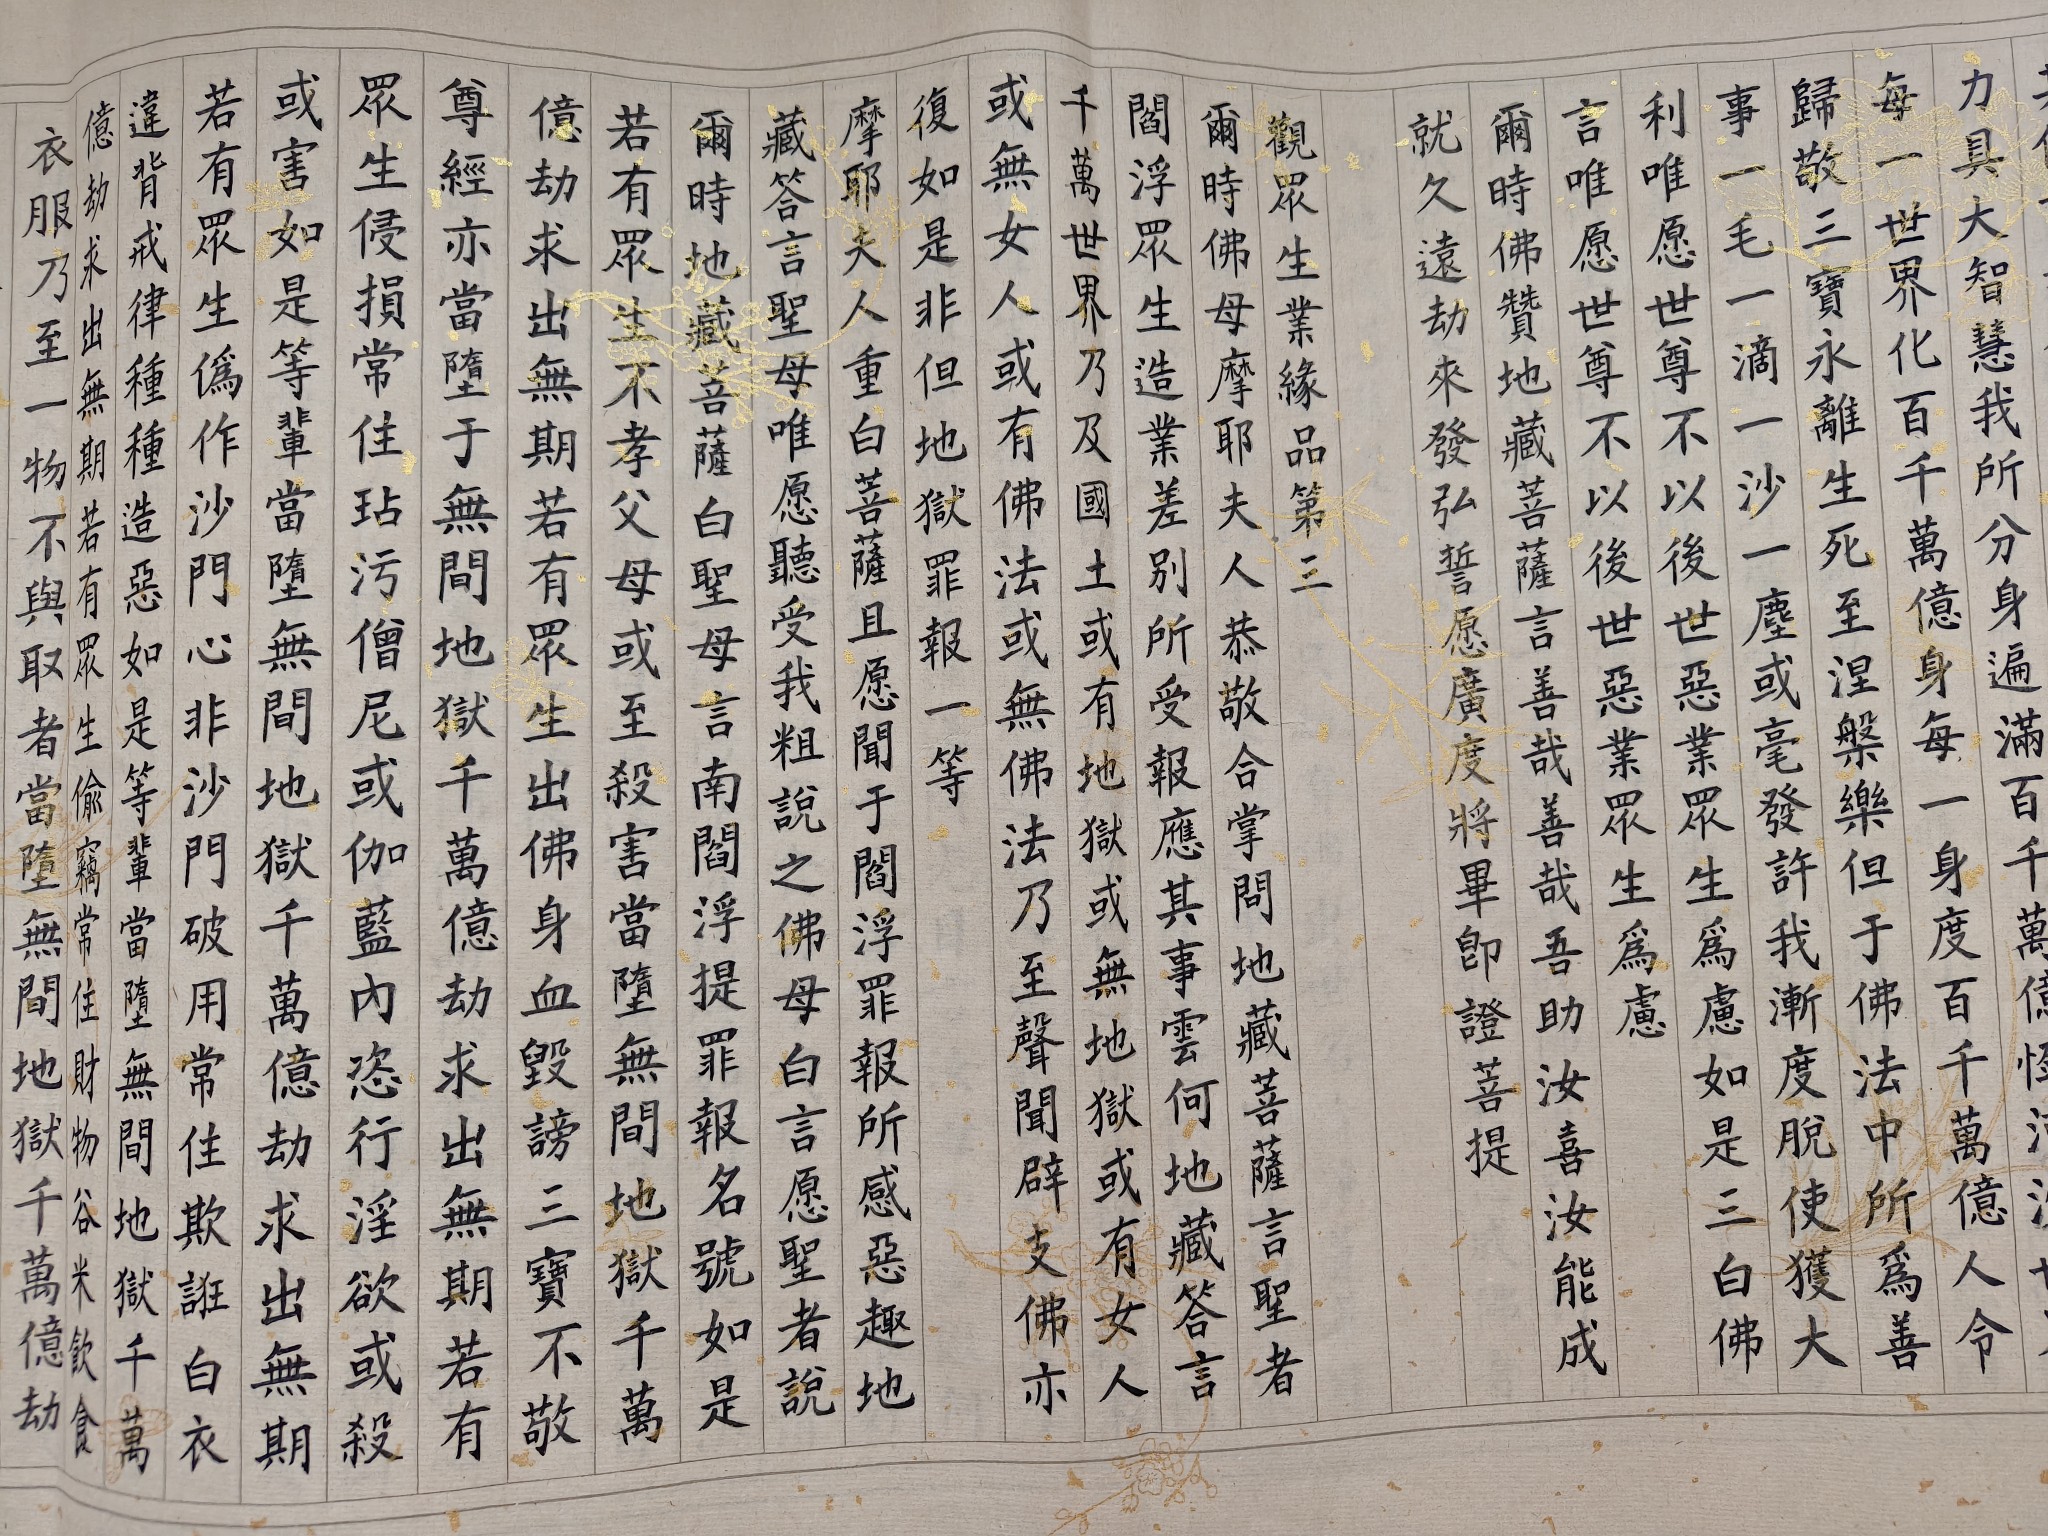 力具大智慧我所分身遍滿百千萬億恆河沙世界
每一世界化百千萬億身每一身度百千萬億人令
歸敬三寶永離生死至涅槃樂但于佛法中所爲善
事一毛一滴一沙一塵或毫發許我漸度脫使獲大
利唯愿世尊不以後世惡業眾生爲慮如是三白佛
言唯愿世尊不以後世惡業眾生爲慮
爾時佛贊地藏菩薩言善哉善哉吾助汝喜汝能成
就久遠劫來發弘誓愿廣度將畢即證菩提
觀眾生業緣品第三
爾時佛母摩耶夫人恭敬合掌問地藏菩薩言聖者
閻浮眾生造業差別所受報應其事雲何地藏答言
千萬世界乃及國土或有地獄或無地獄或有女人
或無女人或有佛法或無佛法乃至聲聞辟支佛亦
復如是非但地獄罪報一等
摩耶夫人重白菩薩且愿聞于閻浮罪報所感惡趣地
藏答言聖母唯愿聽受我粗說之佛母白言愿聖者說
爾時地藏菩薩白聖母言南閻浮提罪報名號如是
若有眾生不孝父母或至殺害當墮無間地獄千萬
億劫求出無期若有眾生出佛身血毀謗三寶不敬
尊經亦當墮于無間地獄千萬億劫求出無期若有
眾生侵損常住玷污僧尼或伽藍內恣行淫欲或殺
或害如是等輩當墮無間地獄千萬億劫求出無期
若有眾生僞作沙門心非沙門破用常住欺誑白衣
違背戒律種種造惡如是等輩當墮無間地獄千萬
億劫求出無期若有眾生偷竊常住財物谷米飲食
衣服乃至一物不與取者當墮無間地獄千萬億劫